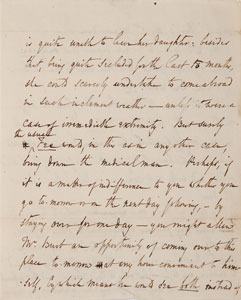 is quite unable to leave her daughter: besides
that, being quite secluded for the last 15 months
she could scarcely undertake to come abroad
in such inclement weather — unless it were a
case of irremediable extremity. But surely
the usual
fee would, in this as in any other case,
bring down the medical man. Perhaps, if
it is a matter of indifference to you whether you
go to-morrow or on the next day following, — by
staying over for one day — you might allow
Mr. Burt an opportunity of coming over to this
place to-morrow at any hour convenient to him-
self, by which means he would see both instead of